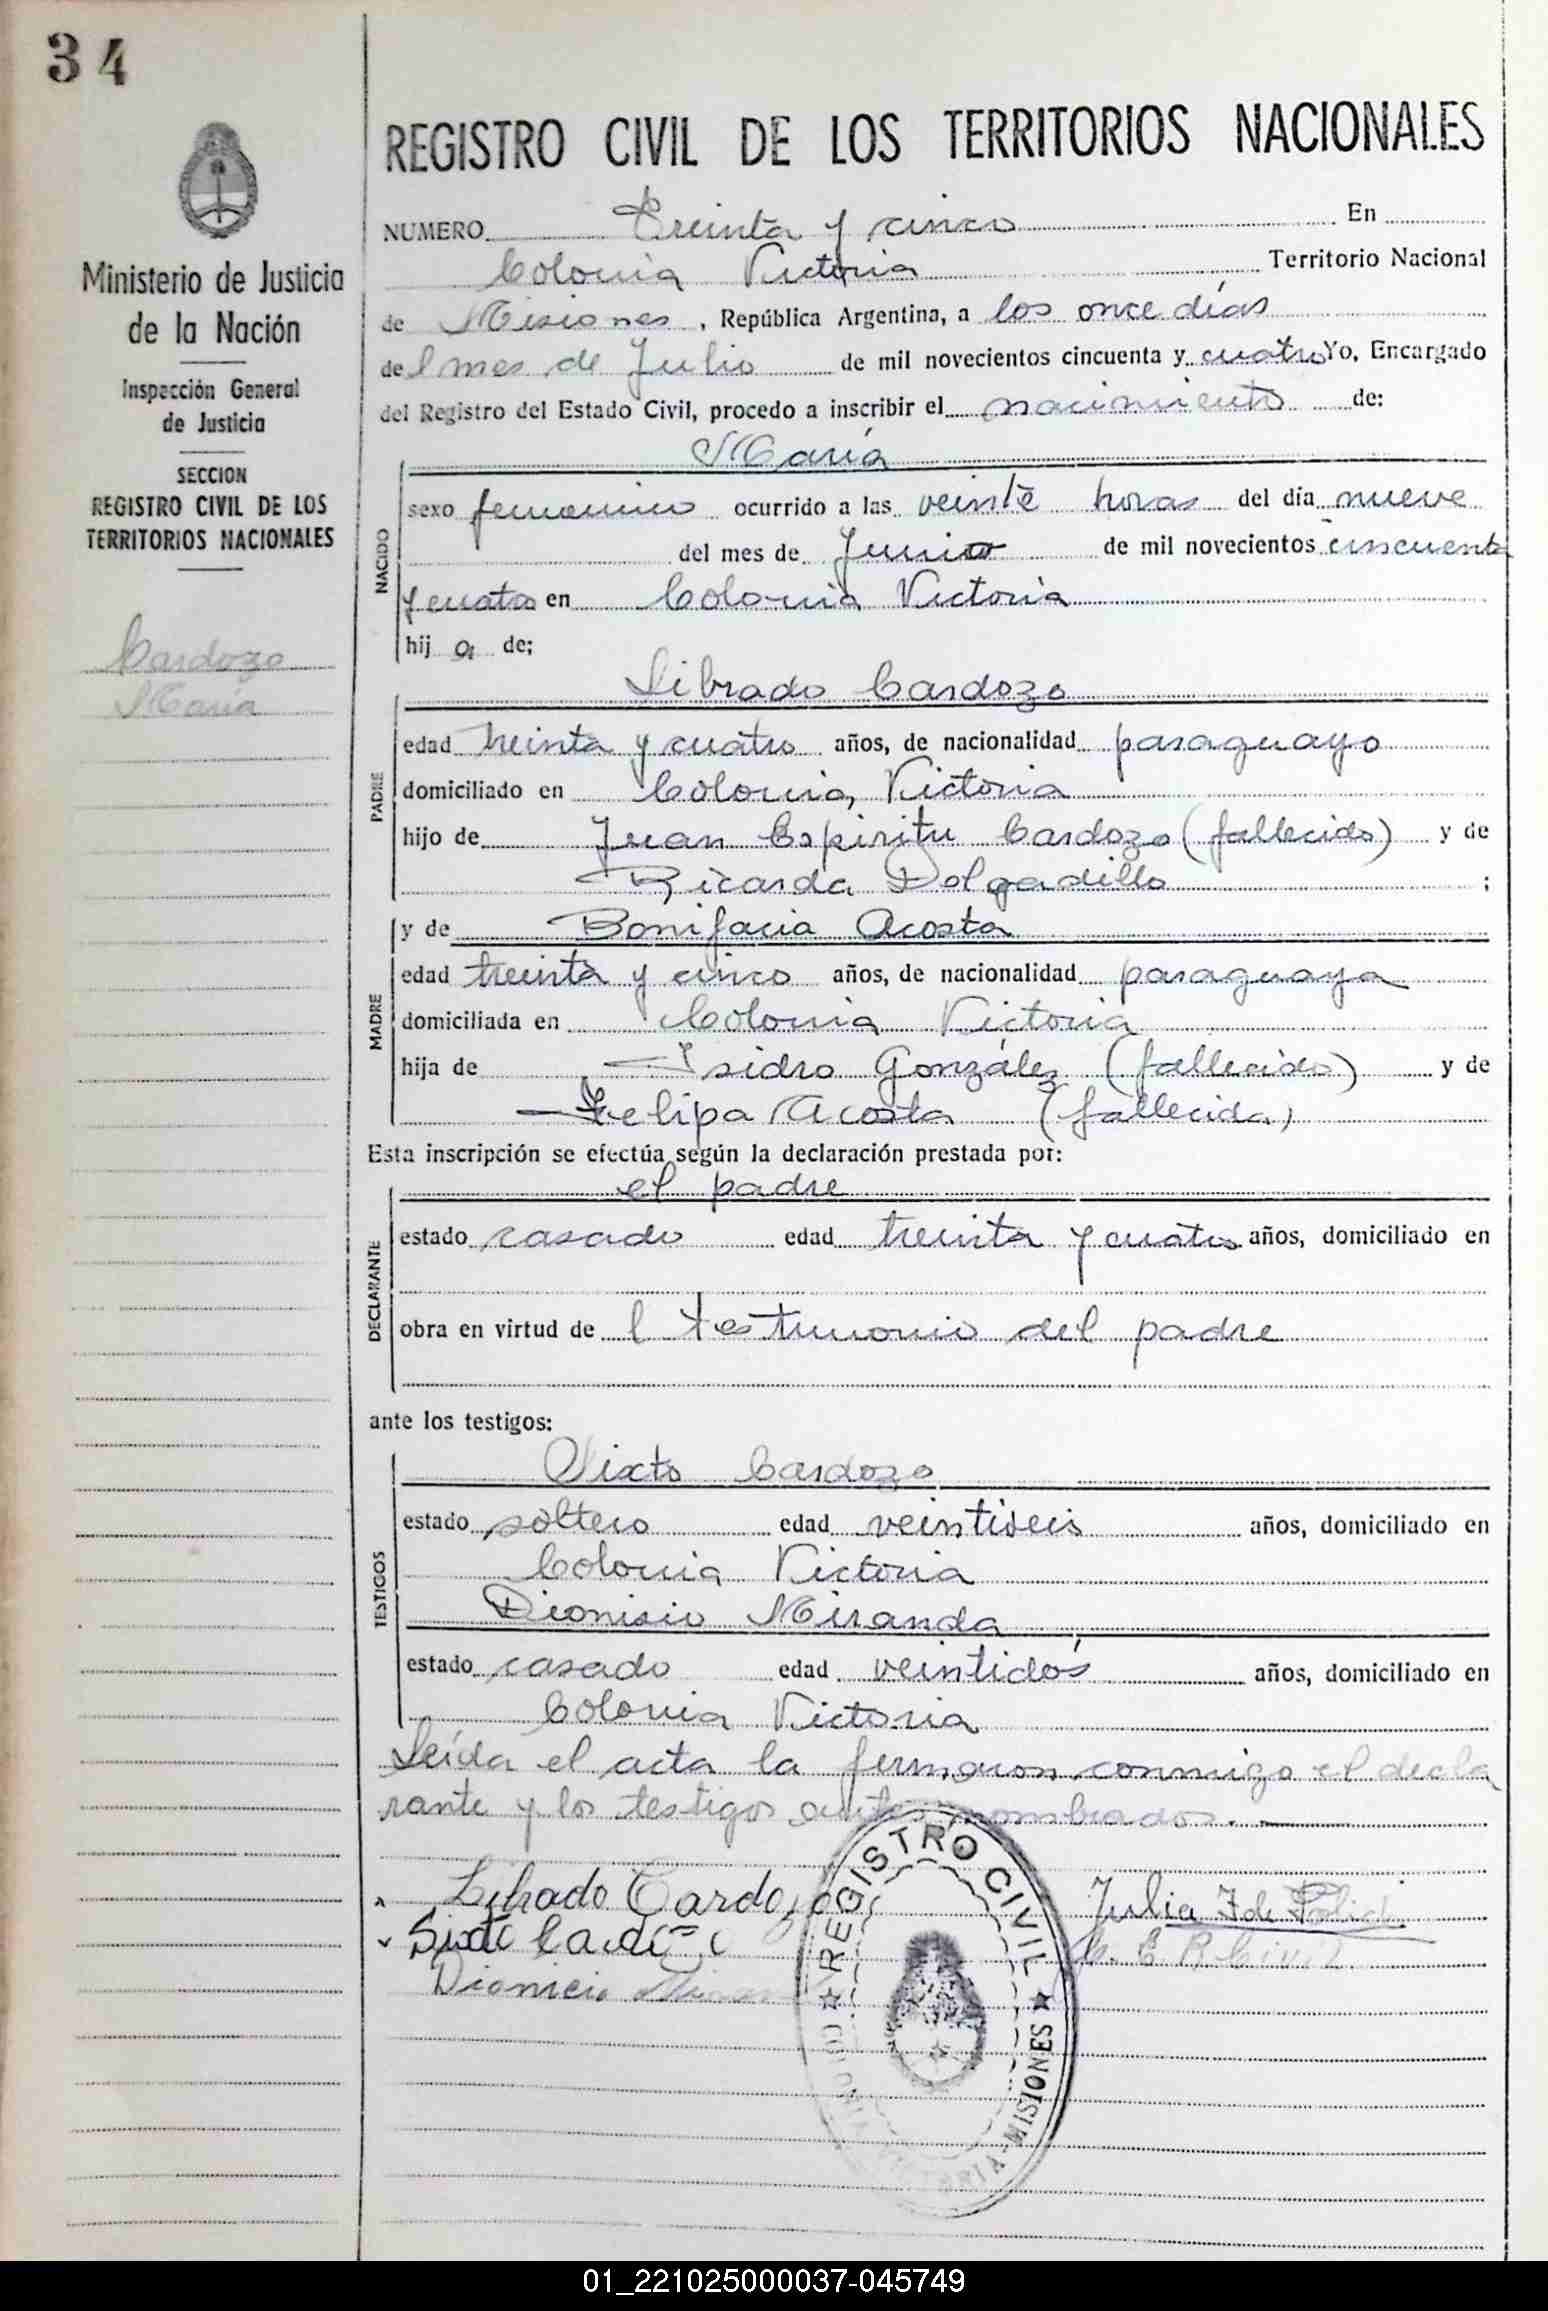 34
Ministerio de Justicia
de la Nación
Inspección General
de Justicia
SECCION
REGISTRO CIVIL DE LOS
TERRITORIOS NACIONALES
Cardozo
María
REGISTRO CIVIL DE LOS TERRITORIOS NACIONALES
NUMERO Treinta y cinco En
Colonia Victoria Territorio Nacional
de Misiones, República Argentina, a los once días
del mes de Julio de mil novecientos cincuenta y cuatro Yo, Encargado
del Registro del Estado Civil, procedo a inscribir el nacimiento de:
María
NACIDO
sexo femenino ocurrido a las veinte horas del día nueve
del mes de Junio de mil novecientos cincuenta
y cuatro en Colonia Victoria
hij a de;
Librado Cardozo
PADRE
edad treinta y cuatro años, de nacionalidad paraguayo
domiciliado en Colonia, Victoria
hijo de Juan Espiritu Cardozo (fallecido) y de
Ricarda Dolgadillo ;
y de Bonifacia Acosta
MADRE
edad treinta y cinco años, de nacionalidad paraguaya
domiciliada en Colonia Victoria
hija de Isidro González (fallecido) y de
Felipa Acosta (fallecida)
Esta inscripción se efectúa según la declaración prestada por:
el padre
DECLARANTE
estado casado edad treinta y cuatro años, domiciliado en
obra en virtud de l testimonio del padre
ante los testigos:
Sixto Cardozo
TESTIGOS
estado soltero edad veintiseis años, domiciliado en
Colonia Victoria
Dionisio Miranda
estado casado edad veintidós años, domiciliado en
Colonia Victoria
Leída el acta la firmaron conmigo el decla
rante y los testigos antes nombrados.
Librado Cardozo
Sixto Cardozo
Dionicio
Julia F de
REGISTRO CIVIL
COLONIA VICTORIA - MISIONES
01_221025000037-045749